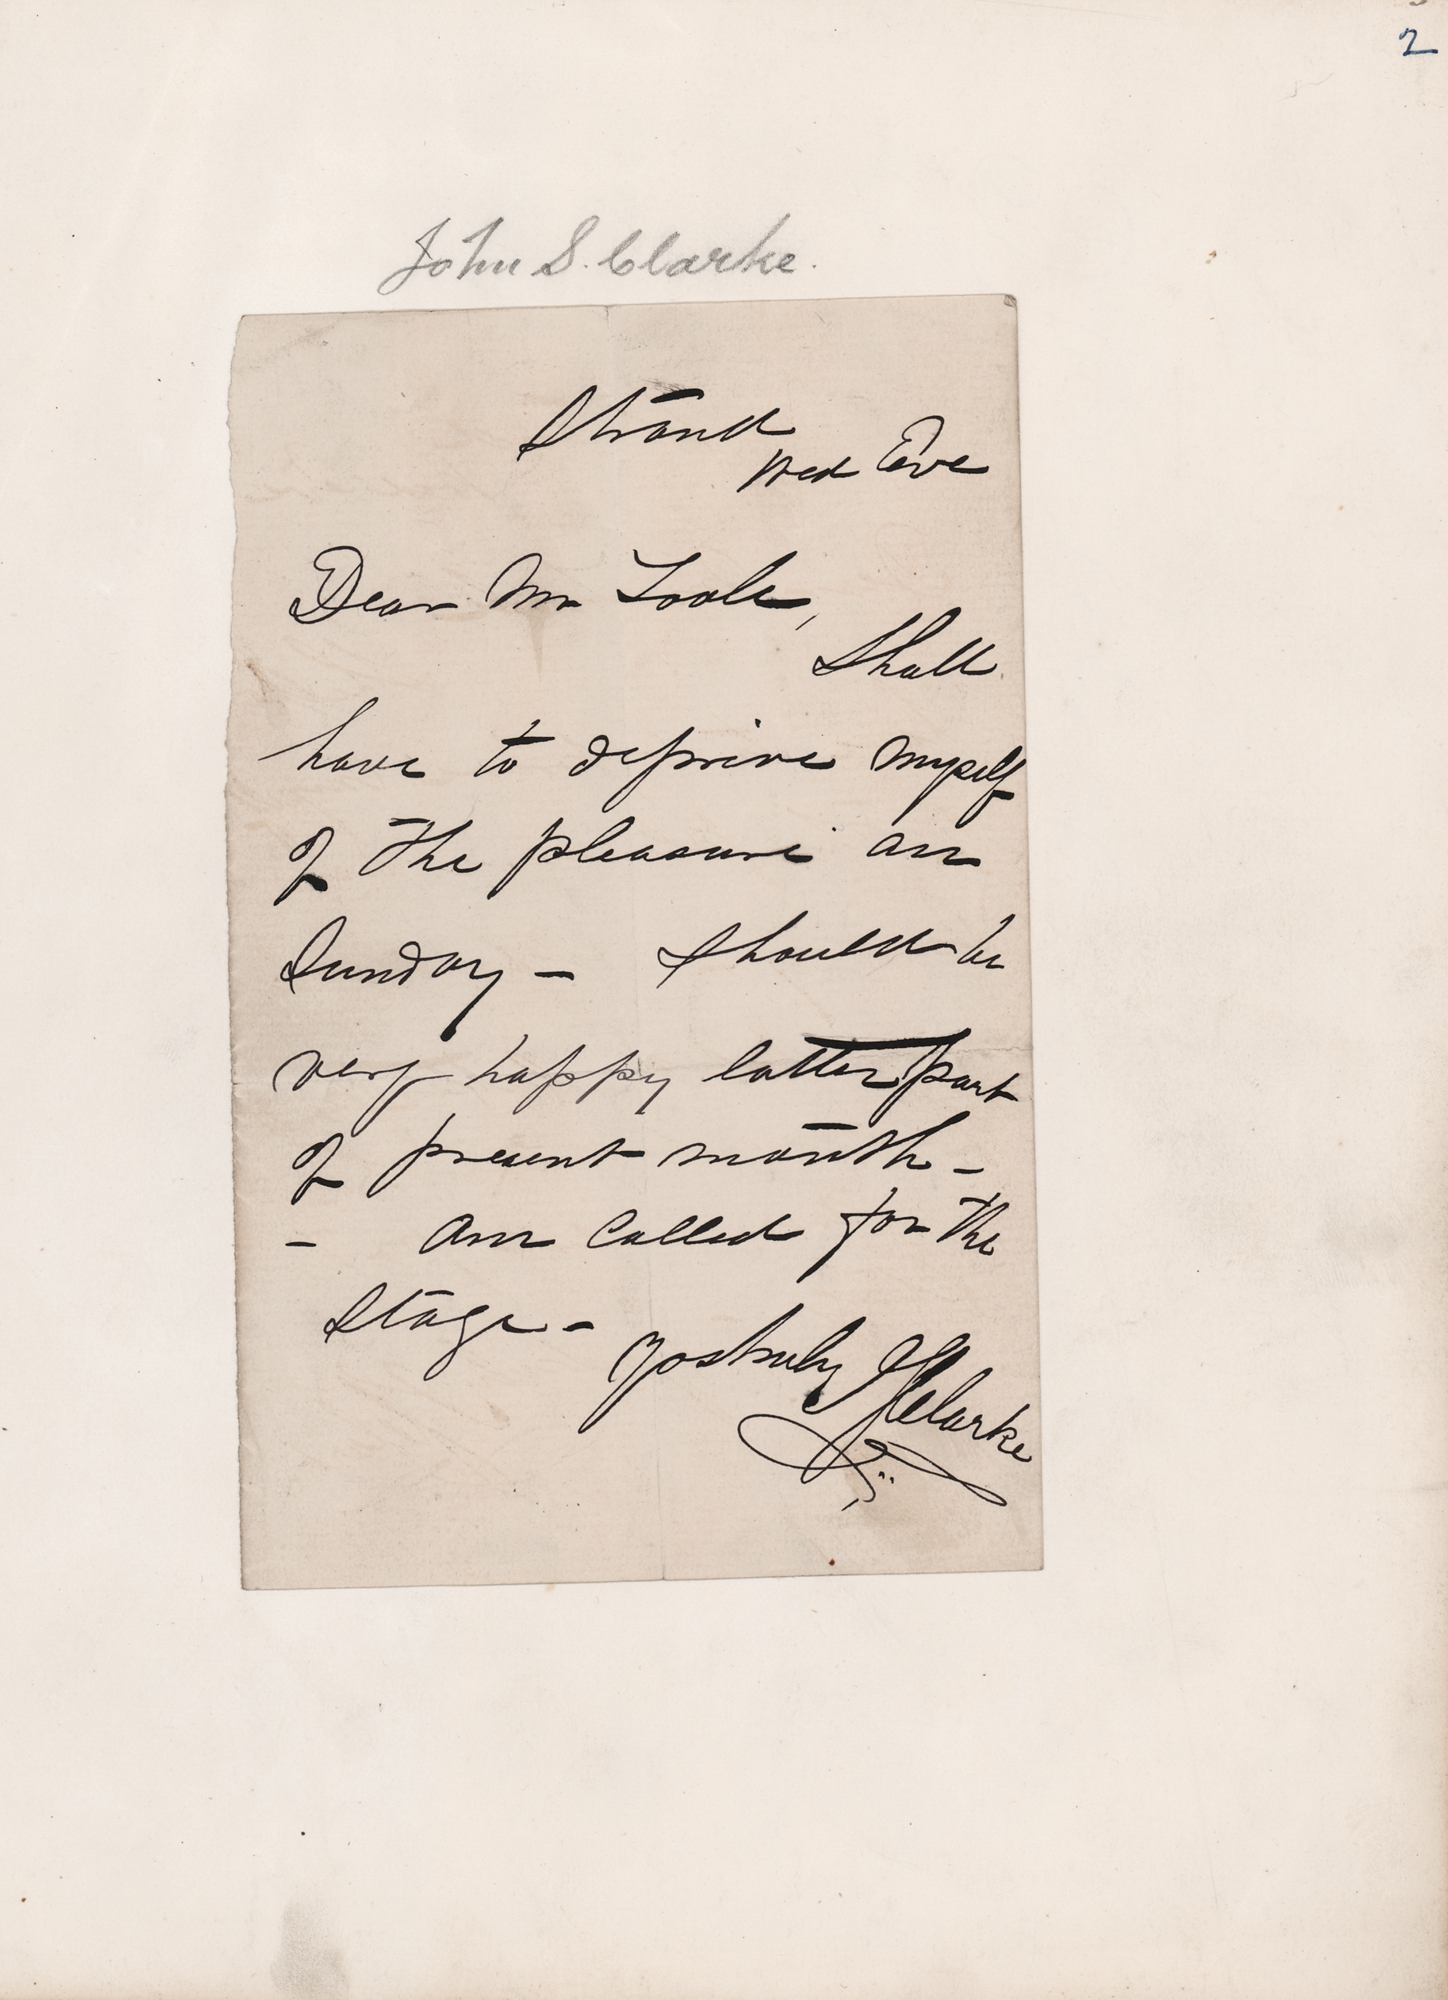 2
John S. Clarke.
Strand
Wed Eve
Dear Mr Toole,
Shall
have to deprive myself
of the pleasure on
Sunday – should be
very happy latter part
of present month –
– am called for the
stage –
Yos truly JSClarke